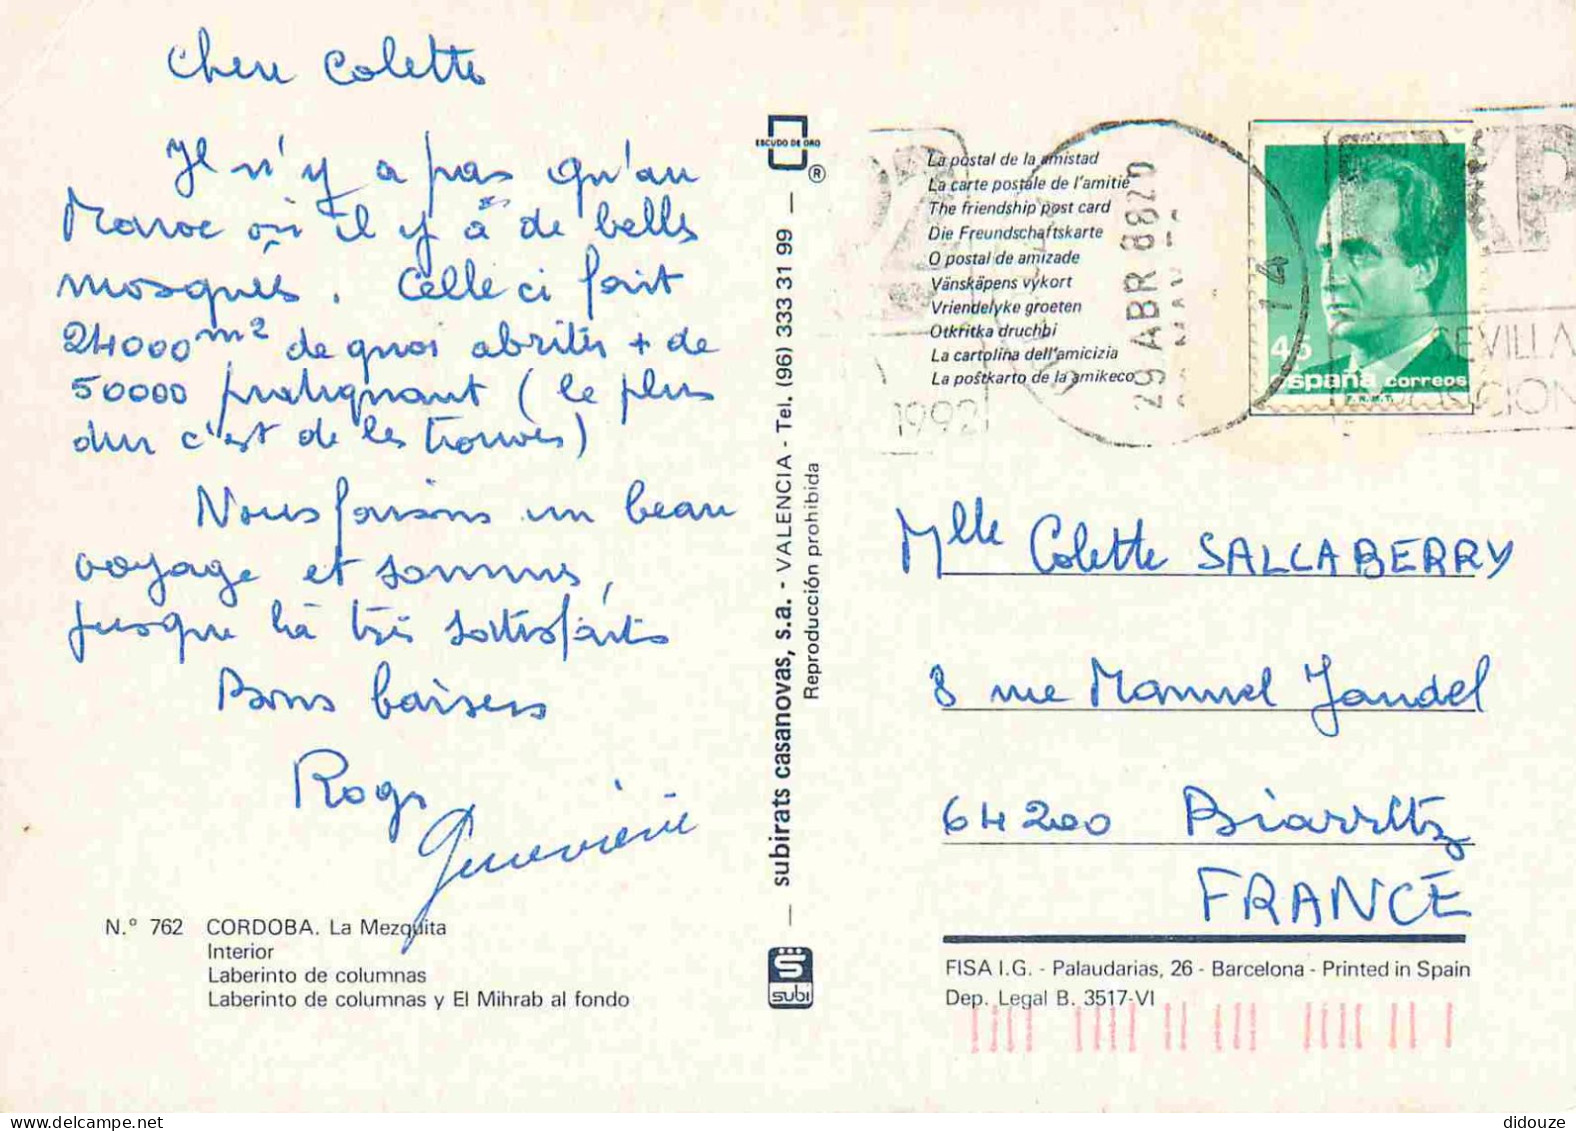 Chere Colette
Il n'y a pas qu'au
Maroc où il y a de belles
mosquées. Celle ci fait
24000 m2 de quoi abriter + de
50000 pratiquant (le plus
dur c'est de les trouver)
Nous faisons un beau
voyage et sommes,
jusque là très satisfaits
Bons baisers
Roger
Geneviève
N.° 762 CORDOBA. La Mezquita
Interior
Laberinto de columnas
Laberinto de columnas y El Mihrab al fondo
ESCUDO DE ORO
®
subirats casanovas, s.a. - VALENCIA - Tel. (96) 333 31 99
Reproducción prohibida
subi
La postal de la amistad
La carte postale de l'amitié
The friendship post card
Die Freundschaftskarte
O postal de amizade
Vänskäpens vykort
Vriendelyke groeten
Otkritka druchbi
La cartolina dell'amicizia
La postkarto de la amikeco
1992
29 ABR 88 20
14
EXP
SEVILLA
45
españa correos
F.N.M.T.
Mlle Colette SALLABERRY
8 rue Manuel Jandel
64200 Biarritz
FRANCE
FISA I.G. - Palaudarias, 26 - Barcelona - Printed in Spain
Dep. Legal B. 3517-VI
didouze